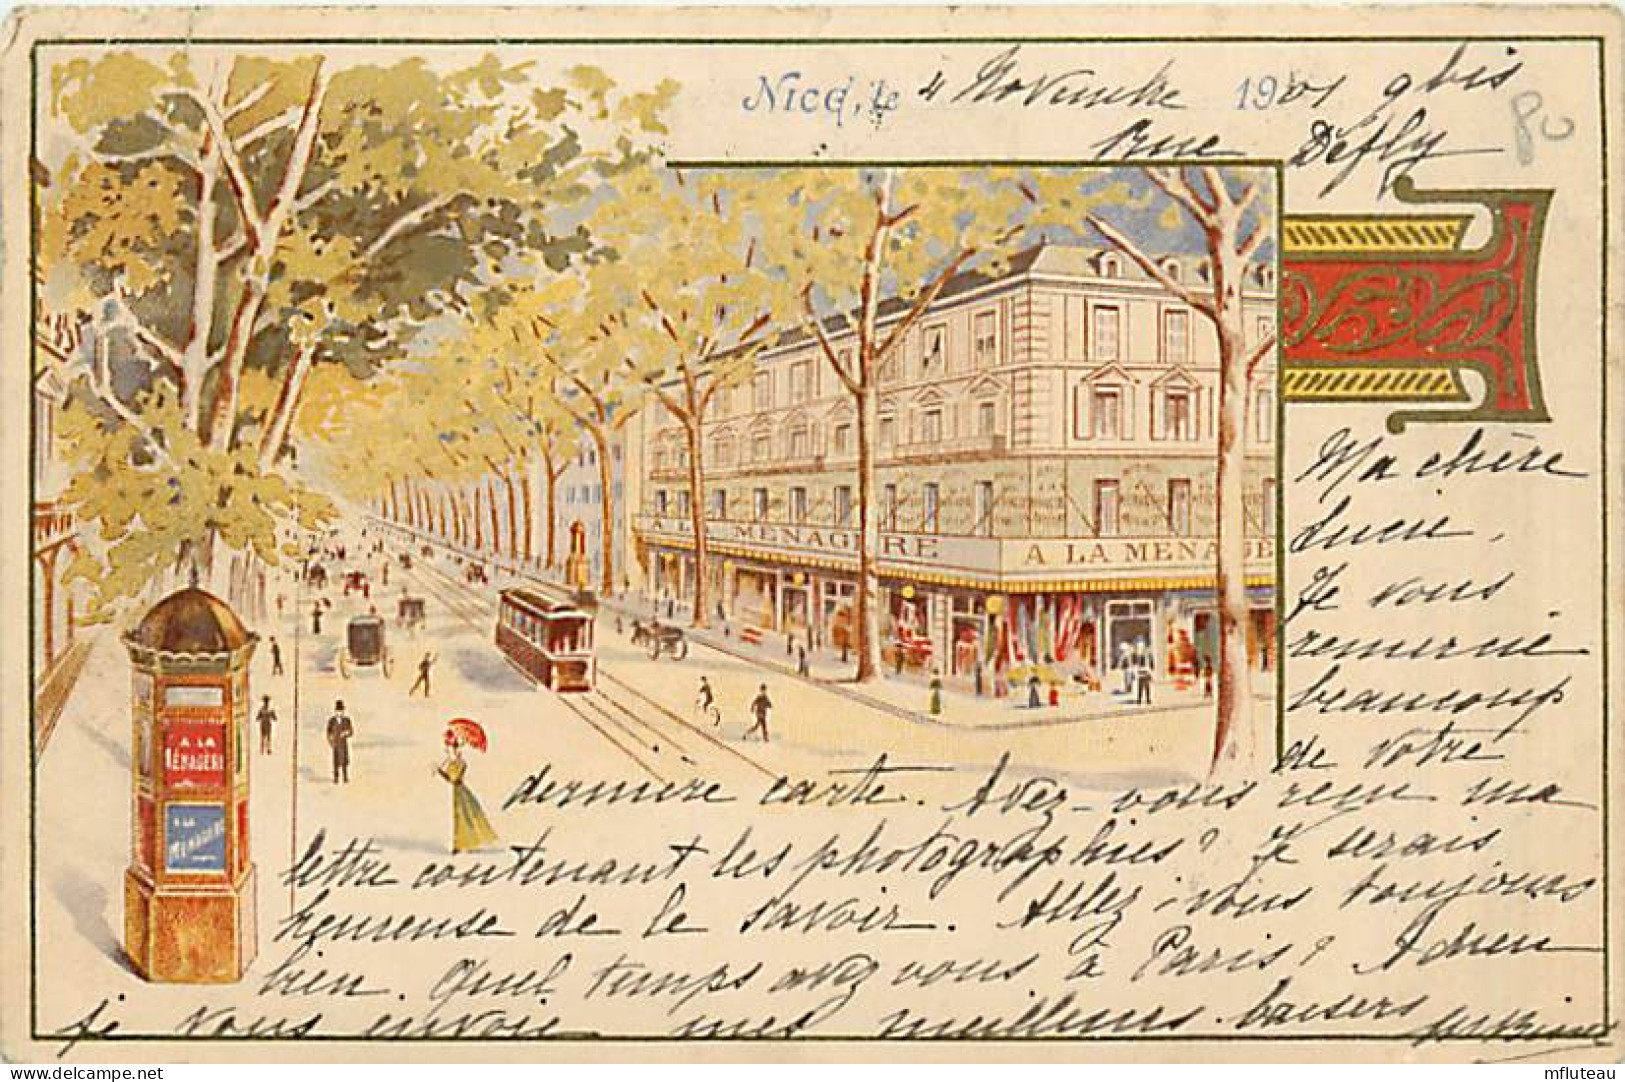 Nice, le 4 Novembre 1901 9 bis
Rue Défly
Ma chère
Lucie,
Je vous
remercie
beaucoup
de votre
dernière carte. Avez-vous reçu ma
lettre contenant les photographies? Je serais
heureuse de le savoir. Allez-vous toujours
bien. Quel temps avez vous à Paris? Adieu
je vous envoie mes meilleurs baisers
A LA MÉNAGÈRE
A LA MÉNAGÈ
A LA
MÉNAGÈRE
A LA
MÉNAGÈRE
Delcampe.net
mfluteau